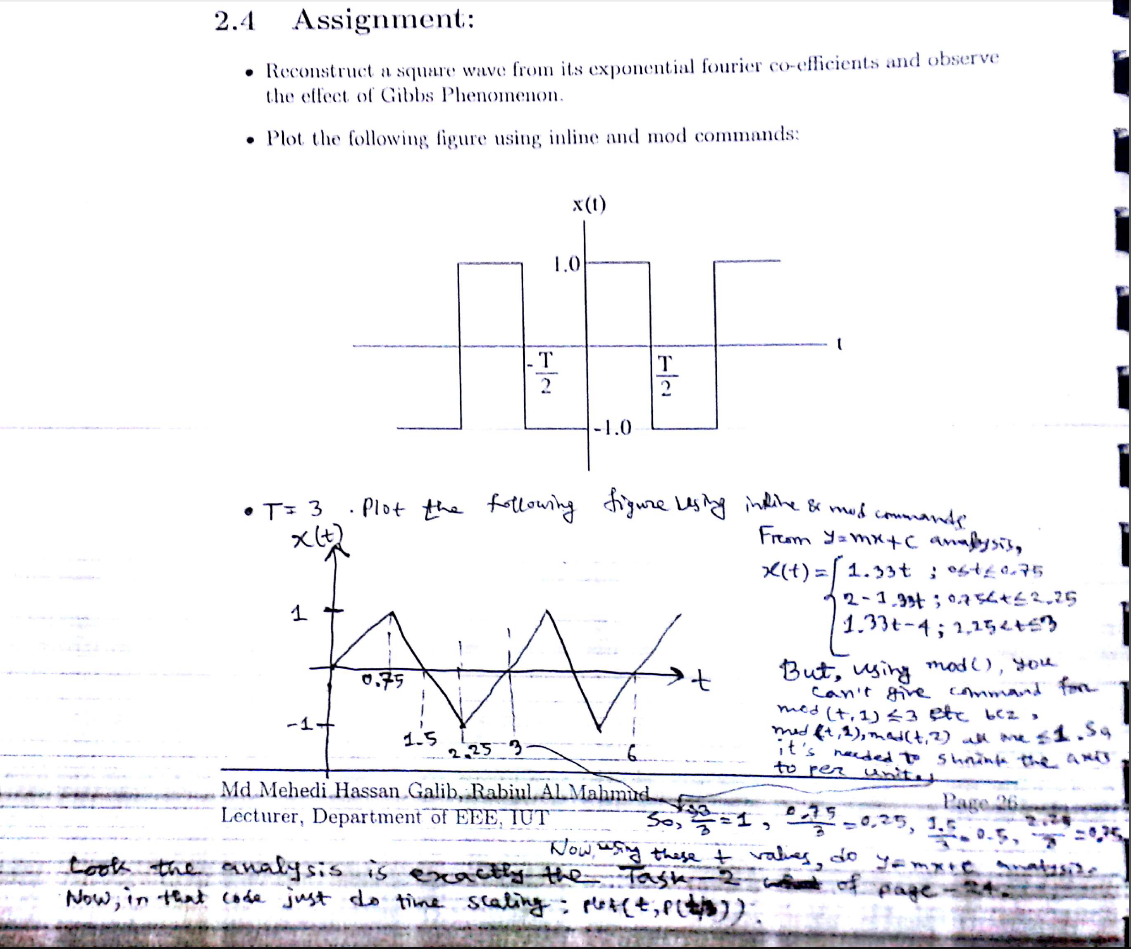 2.4 Assignment:
• Reconstruct a square wave from its exponential fourier co-efficients and observe
the effect of Gibbs Phenomenon.
• Plot the following figure using inline and mod commands:
x(t)
1.0
t
-T/2
T/2
-1.0
• T= 3 . Plot the following figure using inline & mod commands
x(t)
From y=mx+c analysis,
x(t) = { 1.33t ; 0≤t≤0.75
2-1.33t ; 0.75<t≤2.25
1.33t-4 ; 2.25<t≤3
1
0.75
t
-1
1.5
2.25
3
6
But, using mod(), you
can't give command for
mod(t,1)≤3 etc bcz,
mod(t,1), mod(t,2) all are ≤1. So
it's needed to shrink the axis
to per unit.
Md Mehedi Hassan Galib, Rabiul Al Mahmud
Page 26
Lecturer, Department of EEE, IUT
So, 3/3 = 1, 0.75/3 = 0.25, 1.5/3 = 0.5, 2.25/3 = 0.75
Now, using these t values, do y=mx+c analysis.
Look the analysis is exactly the Task-2 of page-24.
Now, in that code just do time scaling : plot(t,p(t/3)).